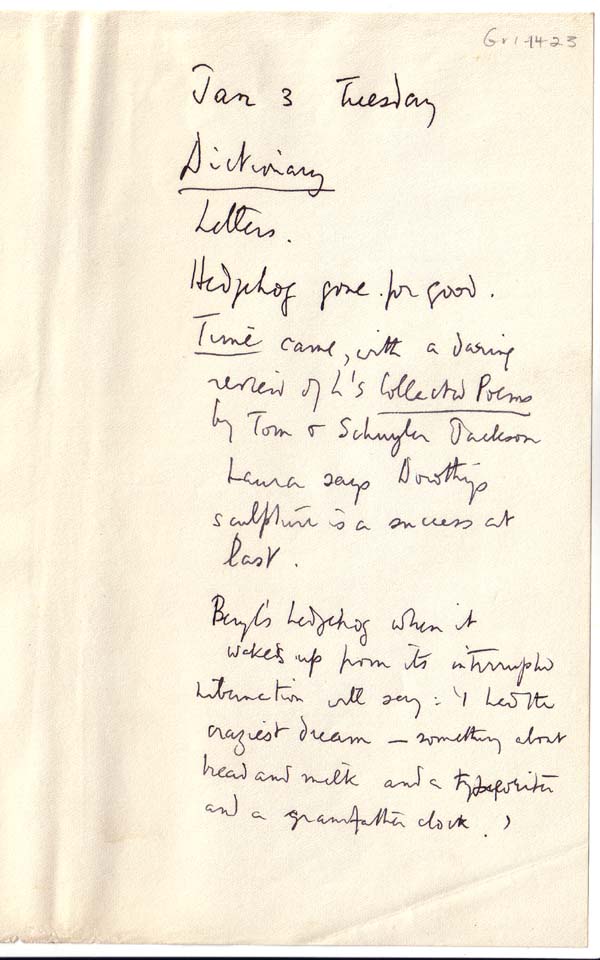 Gri-1423
Jan 3 Tuesday
Dictionary
Letters.
Hedgehog gone for good.
Time came, with a daring
review of L's Collected Poems
by Tom & Schuyler Jackson
Laura says Dorothy's
sculpture is a success at
last.
Beryl's hedgehog when it
wakes up from its interrupted
hibernation will say: 'I had the
craziest dream – something about
bread and milk and a typewriter
and a grandfather clock.'